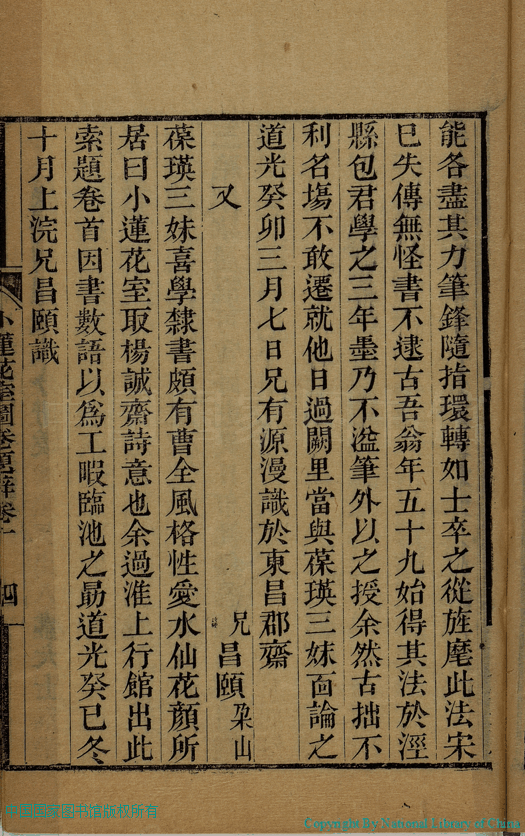 能各盡其力筆鋒隨指環轉如士卒之從旌麾此法宋
已失傳無怪書不逮古吾翁年五十九始得其法於涇
縣包君學之三年墨乃不溢筆外以之授余然古拙不
利名塲不敢遷就他日過闕里當與葆瑛三妹面論之
道光癸卯三月七日兄有源漫識於東昌郡齋
又 兄昌頤朶山
葆瑛三妹喜學隸書頗有曹全風格性愛水仙花顏所
居曰小蓮花室取楊誠齋詩意也余過淮上行館出此
索題卷首因書數語以爲工暇臨池之勗道光癸巳冬
十月上浣兄昌頤識
小蓮花室圖卷題辭卷一 四
中国国家图书馆版权所有
Copyright By National Library of China